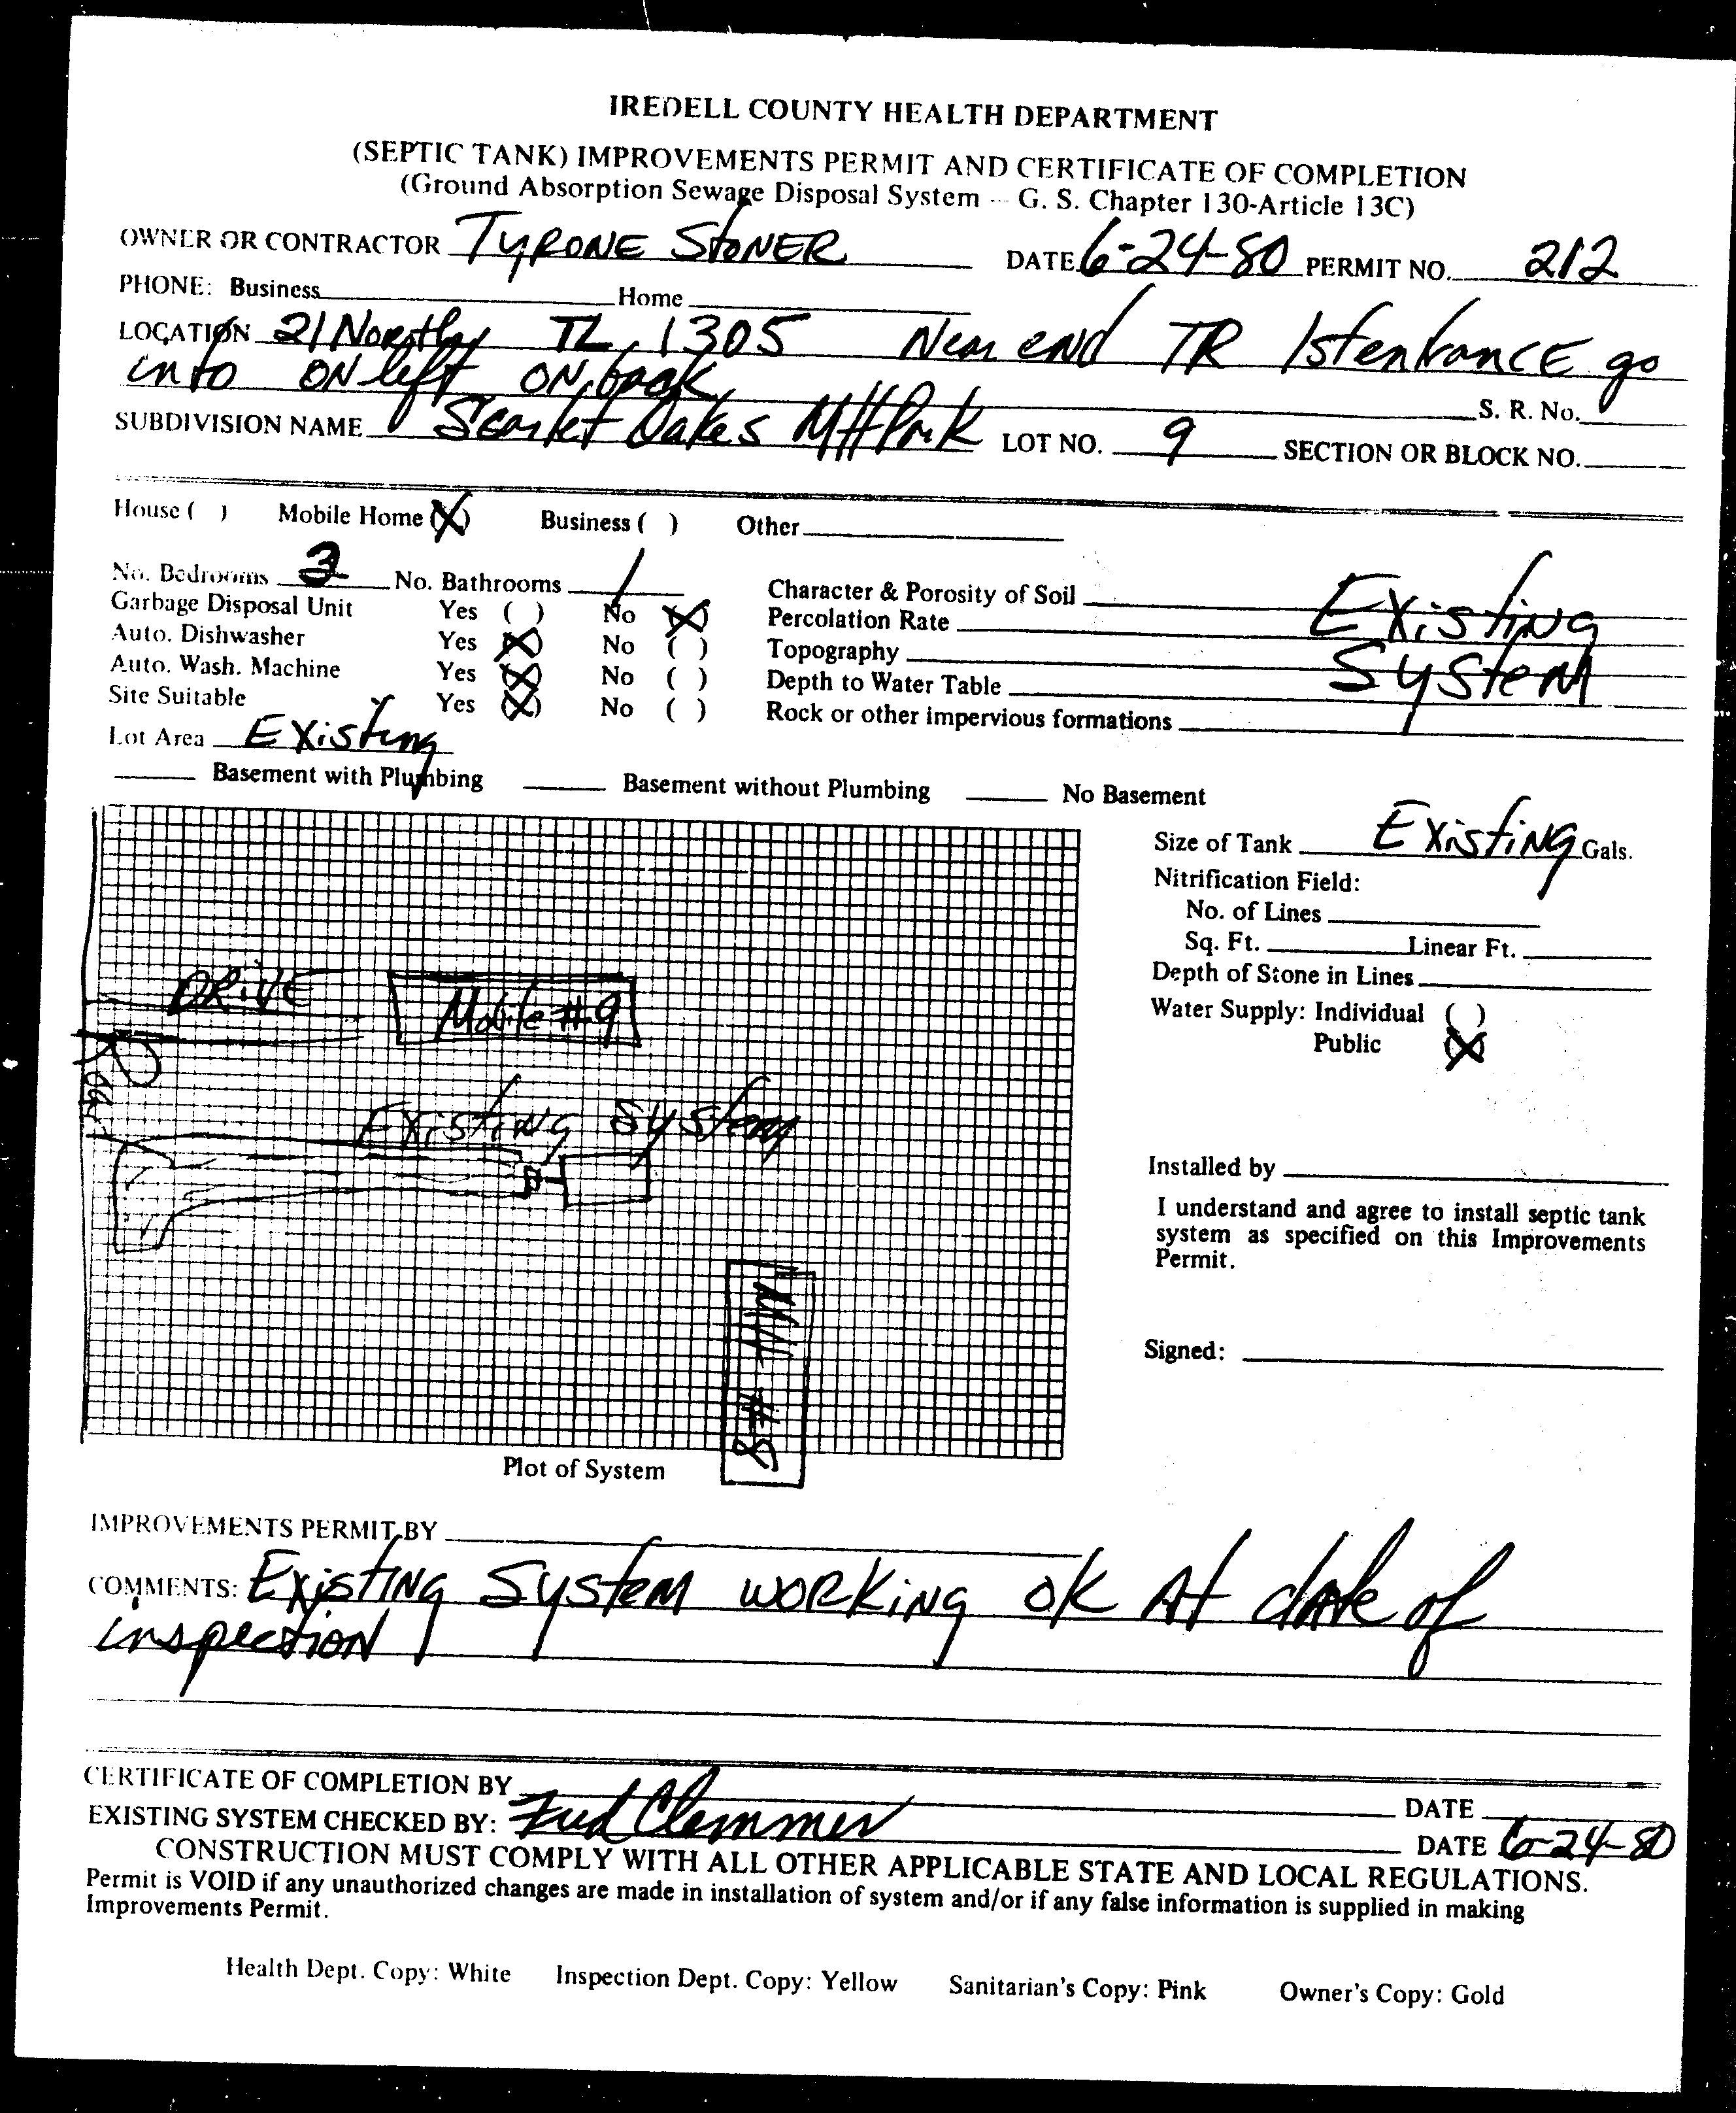 IREDELL COUNTY HEALTH DEPARTMENT
(SEPTIC TANK) IMPROVEMENTS PERMIT AND CERTIFICATE OF COMPLETION
(Ground Absorption Sewage Disposal System -- G. S. Chapter 130-Article 13C)
OWNER OR CONTRACTOR TYRONE STONER DATE 6-24-80 PERMIT NO. 212
PHONE: Business Home
LOCATION 21 North TL 1305 Near end TR 1st entrance go
into ON left ON back S. R. No.
SUBDIVISION NAME Scarlet Oakes MH Park LOT NO. 9 SECTION OR BLOCK NO.
House ( ) Mobile Home (X) Business ( ) Other
No. Bedrooms 3 No. Bathrooms 1 Character & Porosity of Soil Existing
Garbage Disposal Unit Yes ( ) No (X) Percolation Rate
Auto. Dishwasher Yes (X) No ( ) Topography System
Auto. Wash. Machine Yes (X) No ( ) Depth to Water Table
Site Suitable Yes (X) No ( ) Rock or other impervious formations
Lot Area Existing
Basement with Plumbing Basement without Plumbing No Basement
Size of Tank Existing Gals.
Nitrification Field:
No. of Lines
Sq. Ft. Linear Ft.
Depth of Stone in Lines
Water Supply: Individual ( )
Public (X)
DRIVE Mobile #9
Existing System
MH #8
Installed by
I understand and agree to install septic tank
system as specified on this Improvements
Permit.
Signed:
Plot of System
IMPROVEMENTS PERMIT BY
COMMENTS: Existing System working ok At date of
inspection
CERTIFICATE OF COMPLETION BY DATE
EXISTING SYSTEM CHECKED BY: Fred Clemmer DATE 6-24-80
CONSTRUCTION MUST COMPLY WITH ALL OTHER APPLICABLE STATE AND LOCAL REGULATIONS.
Permit is VOID if any unauthorized changes are made in installation of system and/or if any false information is supplied in making
Improvements Permit.
Health Dept. Copy: White Inspection Dept. Copy: Yellow Sanitarian's Copy: Pink Owner's Copy: Gold